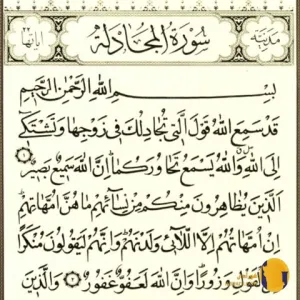 مدنية سُورَةُ المُجَادلَة آياتها
بِسْمِ اللَّهِ الرَّحْمَٰنِ الرَّحِيمِ
قَدْ سَمِعَ اللَّهُ قَوْلَ الَّتِي تُجَادِلُكَ فِي زَوْجِهَا وَتَشْتَكِي
إِلَى اللَّهِ وَاللَّهُ يَسْمَعُ تَحَاوُرَكُمَا إِنَّ اللَّهَ سَمِيعٌ بَصِيرٌ
الَّذِينَ يُظَاهِرُونَ مِنكُم مِّن نِّسَائِهِم مَّا هُنَّ أُمَّهَاتِهِمْ
إِنْ أُمَّهَاتُهُمْ إِلَّا اللَّائِي وَلَدْنَهُمْ وَإِنَّهُمْ لَيَقُولُونَ مُنكَرًا
الْقَوْلِ وَزُورًا وَإِنَّ اللَّهَ لَعَفُوٌّ غَفُورٌ وَالَّذِينَ